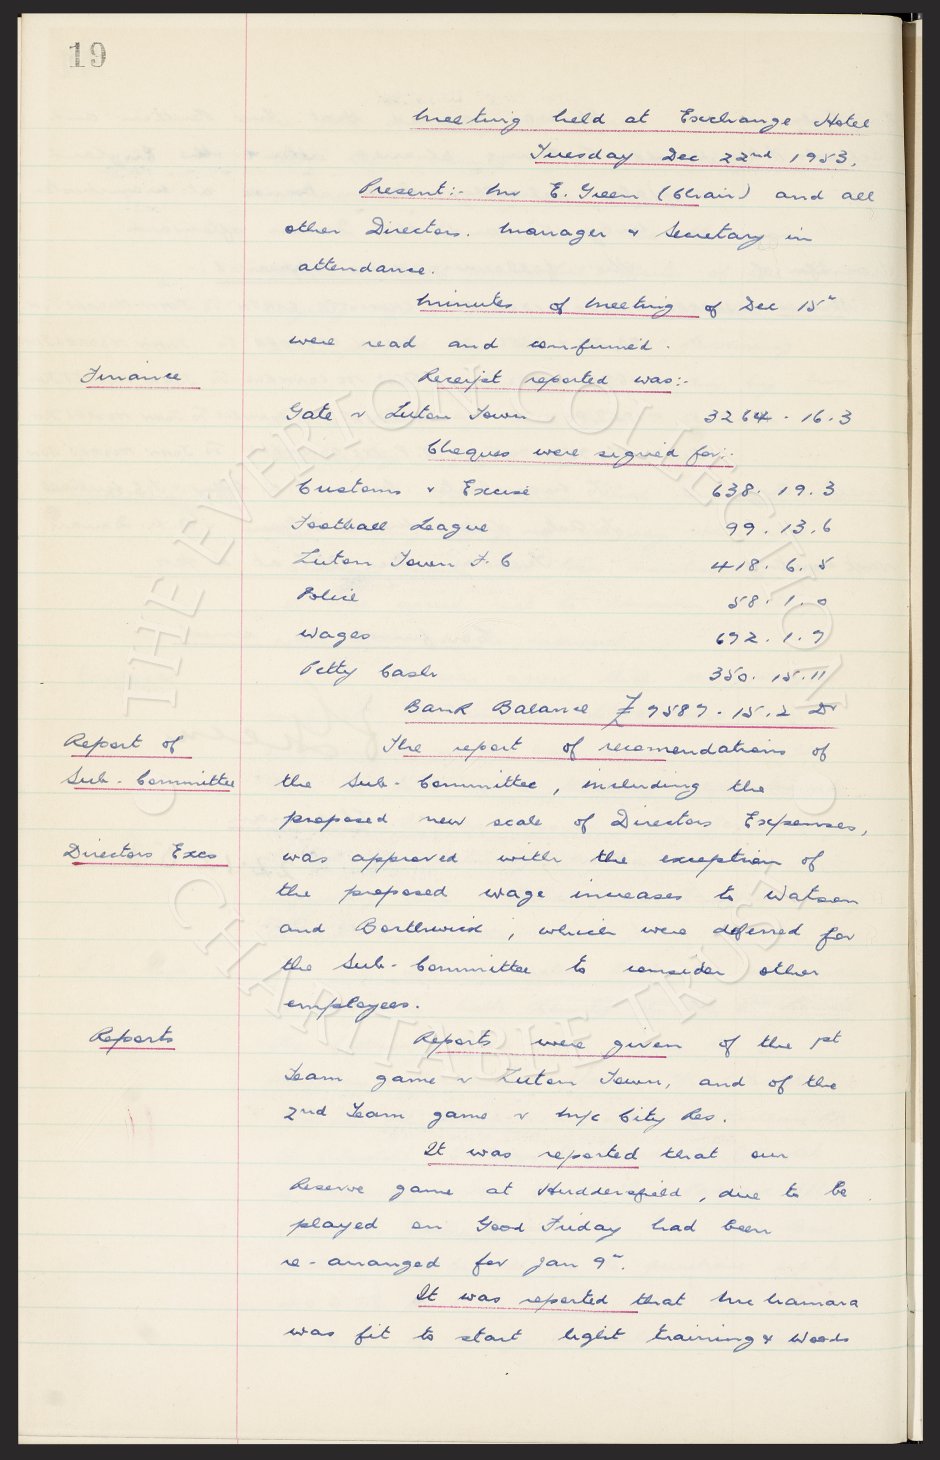 19
Meeting held at Exchange Hotel
Tuesday Dec 22nd 1953.
Present:- Mr E. Green (Chair) and all
other Directors. Manager & Secretary in
attendance.
Minutes of Meeting of Dec 15"
were read and confirmed.
Finance
Receipt reported was:-
Gate v Luton Town 3264. 16. 3
Cheques were signed for:-
Customs & Excise 638. 19. 3
Football League 99. 13. 6
Luton Town F. C 418. 6. 5
Police 58. 1. 0
Wages 692. 1. 9
Petty Cash 350. 15. 11
Bank Balance £ 9589. 15. 2 Dr
Report of
Sub-Committee
The report of recomendations of
the Sub-Committee, including the
proposed new scale of Directors Expenses,
Directors Exes
was approved with the exception of
the proposed wage increases to Watson
and Borthwick, which were deferred for
the Sub-Committee to consider other
employees.
Reports
Reports were given of the 1st
Team game v Luton Town, and of the
2nd Team game v M/c City Res.
It was reported that our
Reserve game at Huddersfield, due to be
played on Good Friday had been
re-arranged for Jan 9".
It was reported that McNamara
was fit to start light training & Woods
© THE EVERTON COLLECTION
CHARITABLE TRUST